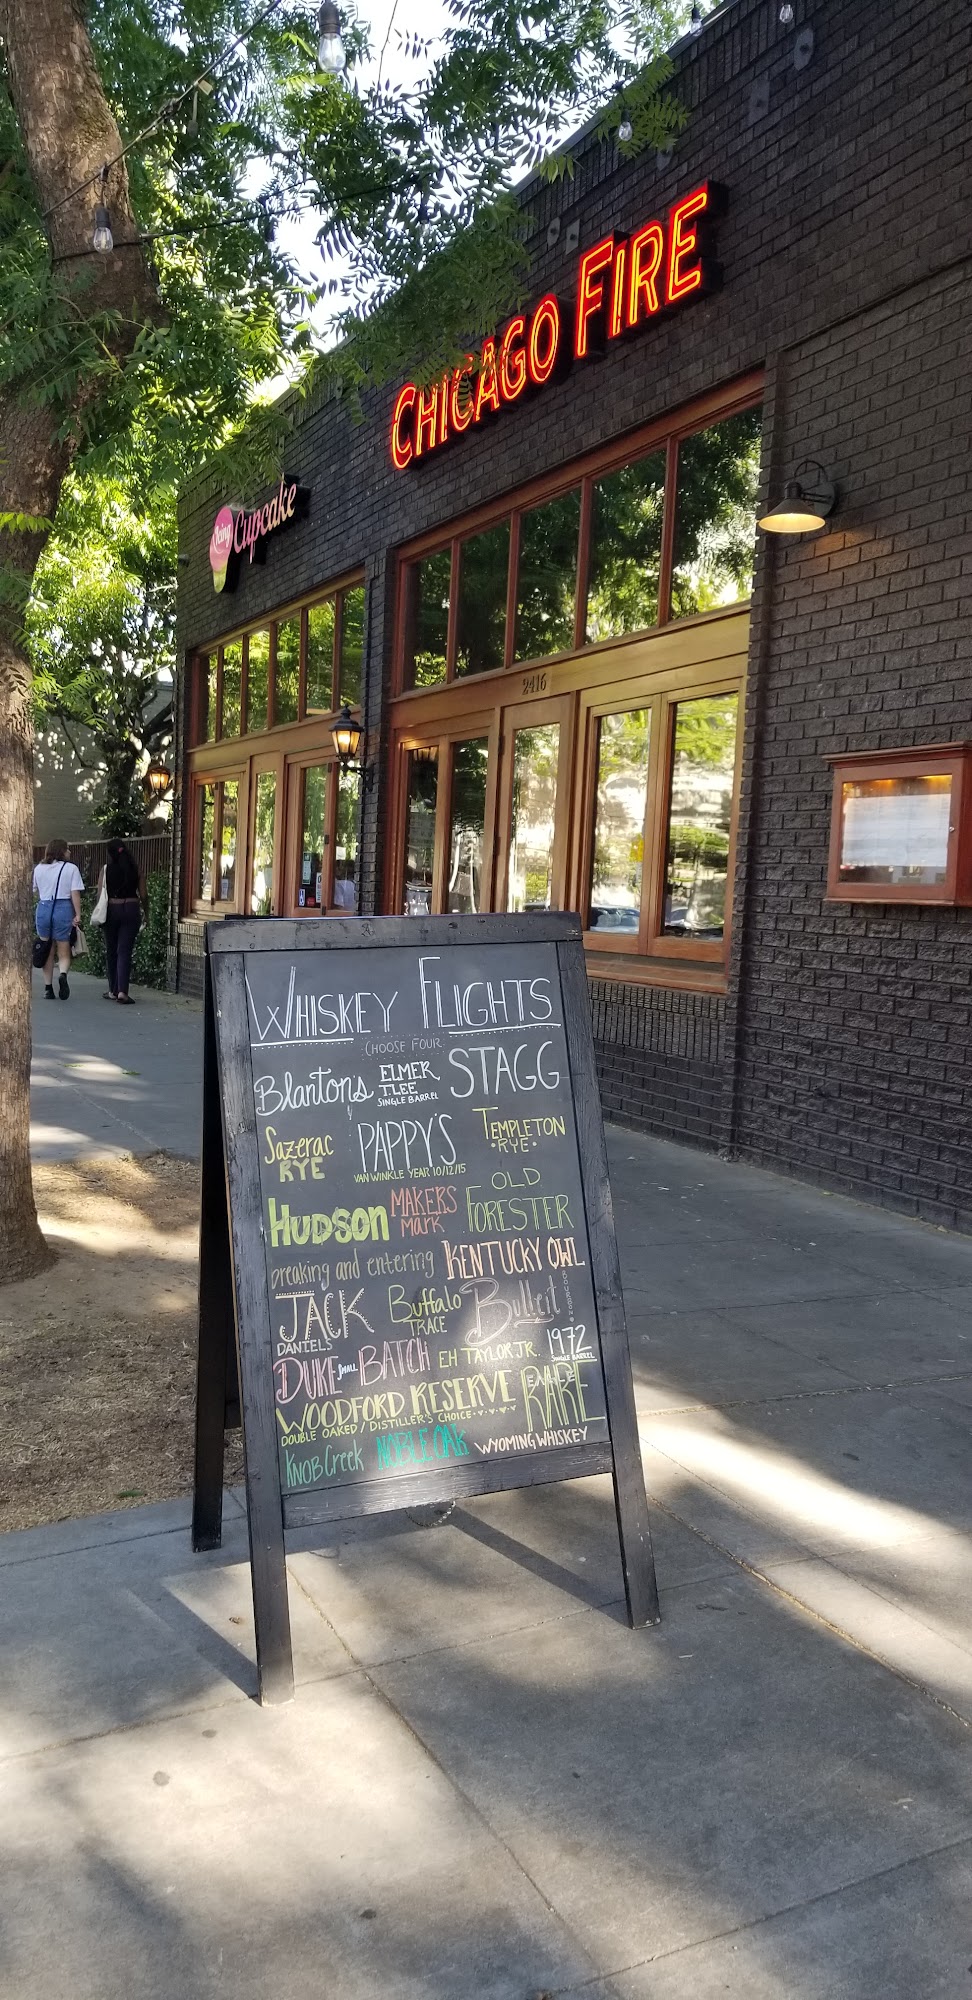 CHICAGO FIRE
Icing
Cupcake
2416
WHISKEY FLIGHTS
CHOOSE FOUR
Blanton's ELMER T.LEE SINGLE BARREL STAGG
Sazerac RYE PAPPY'S VAN WINKLE YEAR 10/12/15 TEMPLETON •RYE•
HUDSON MAKERS MARK OLD FORESTER
breaking and entering KENTUCKY OWL
JACK DANIELS Buffalo TRACE Bulleit BOURBON
DUKE SMALL BATCH EH TAYLOR JR. 1972 SINGLE BARREL
WOODFORD RESERVE EAGLE RARE
DOUBLE OAKED / DISTILLER'S CHOICE
KNOB Creek NOBLE OAK WYOMING WHISKEY